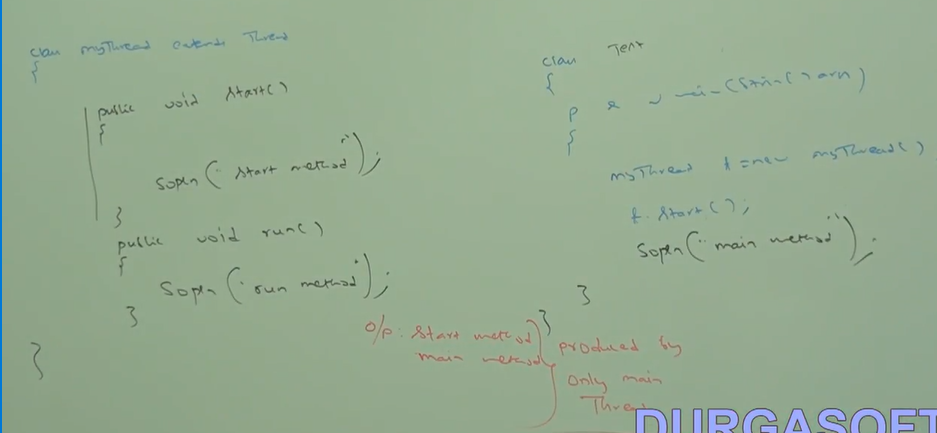 class myThread extends Thread
{
public void start()
{
Sopln("start method");
}
public void run()
{
Sopln("run method");
}
}
class Test
{
p s v main(String[] args)
{
myThread t = new myThread()
t.start();
Sopln("main method");
}
}
o/p: start method
main method
produced by
only main
Thread
DURGASOFT